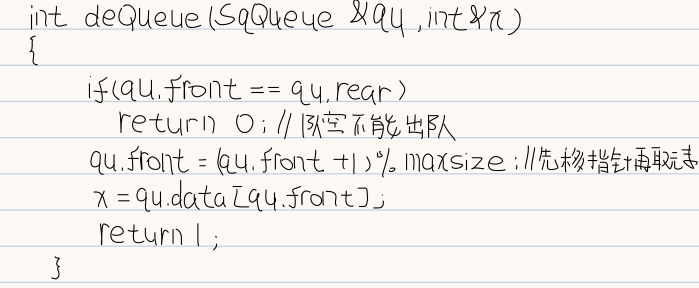 int deQueue(SqQueue &qu,int&x)
{
if(qu.front == qu.rear)
return 0; //队空不能出队
qu.front = (qu.front +1)% maxsize; //先移指针再取元素
x = qu.data[qu.front];
return 1;
}